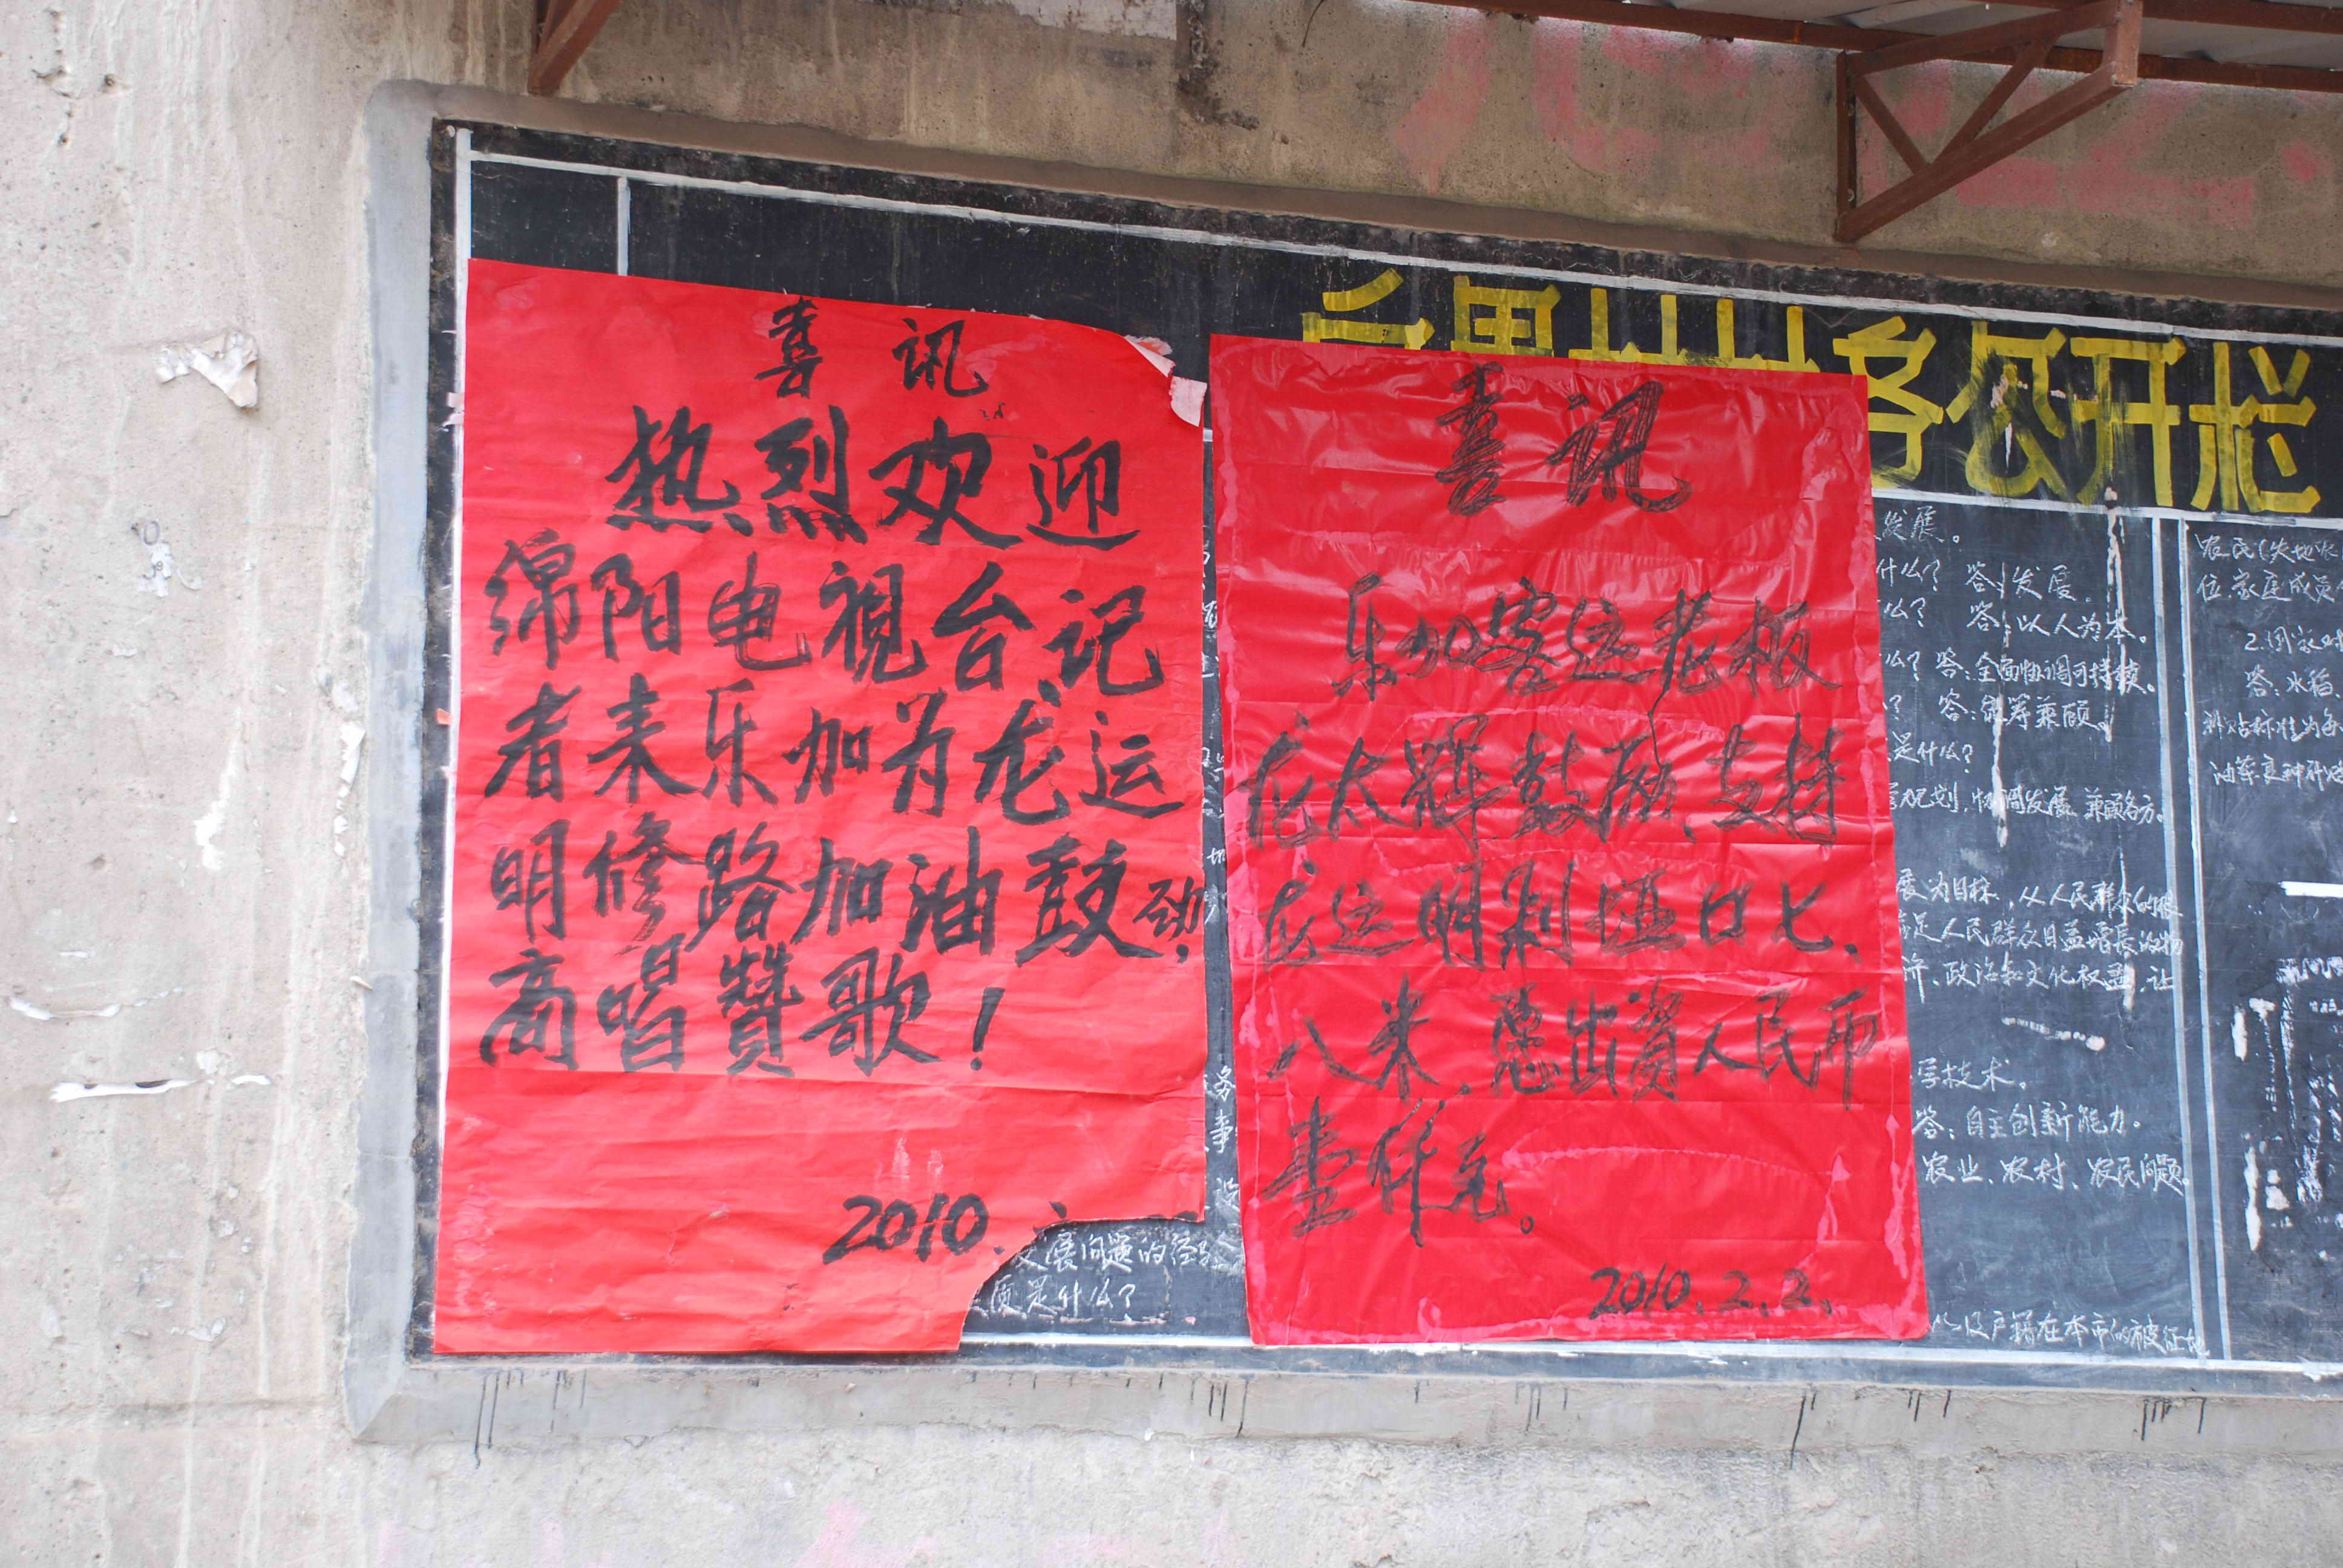 喜讯
热烈欢迎
绵阳电視台记
者来乐加为龙运
明修路加油鼓劲,
高唱贊歌!
2010.
喜讯
乐加客运老板
龙太辉鼓励、支持
龙运明剁垭口七、
八米,愿出資人民币
壹仟元。
2010.2.2.
村村务公开栏
发展。
什么? 答:发展。
么? 答:以人为本。
么? 答:全面协调可持续。
? 答:统筹兼顾。
是什么?
规划,协调发展 兼顾各方。
展为目标,从人民群众的根
足人民群众日益增长的物
济、政治和文化权益,让
学技术。
答:自主创新能力。
农业、农村、农民问题。
以及户籍在本市的被征地
农民(失地农
位,家庭成员
2.国家对
答:水稻、
料贴标准为每
油菜良种补贴
发展问题的经验
质是什么?
务
事